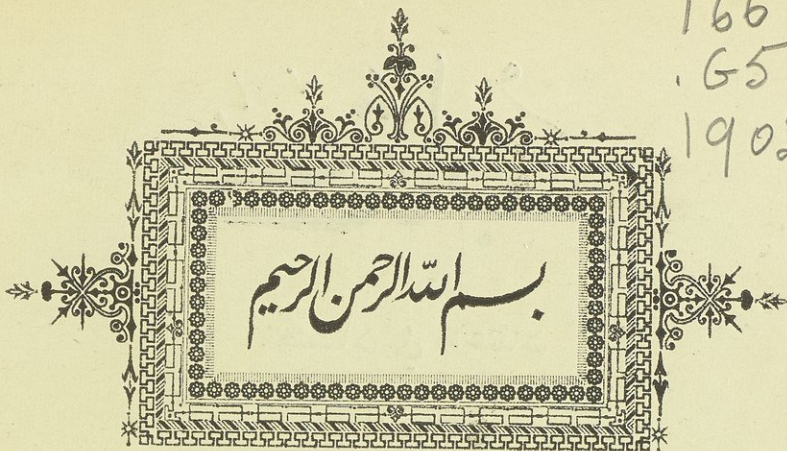 166
.G5
1902
بسم الله الرحمن الرحيم